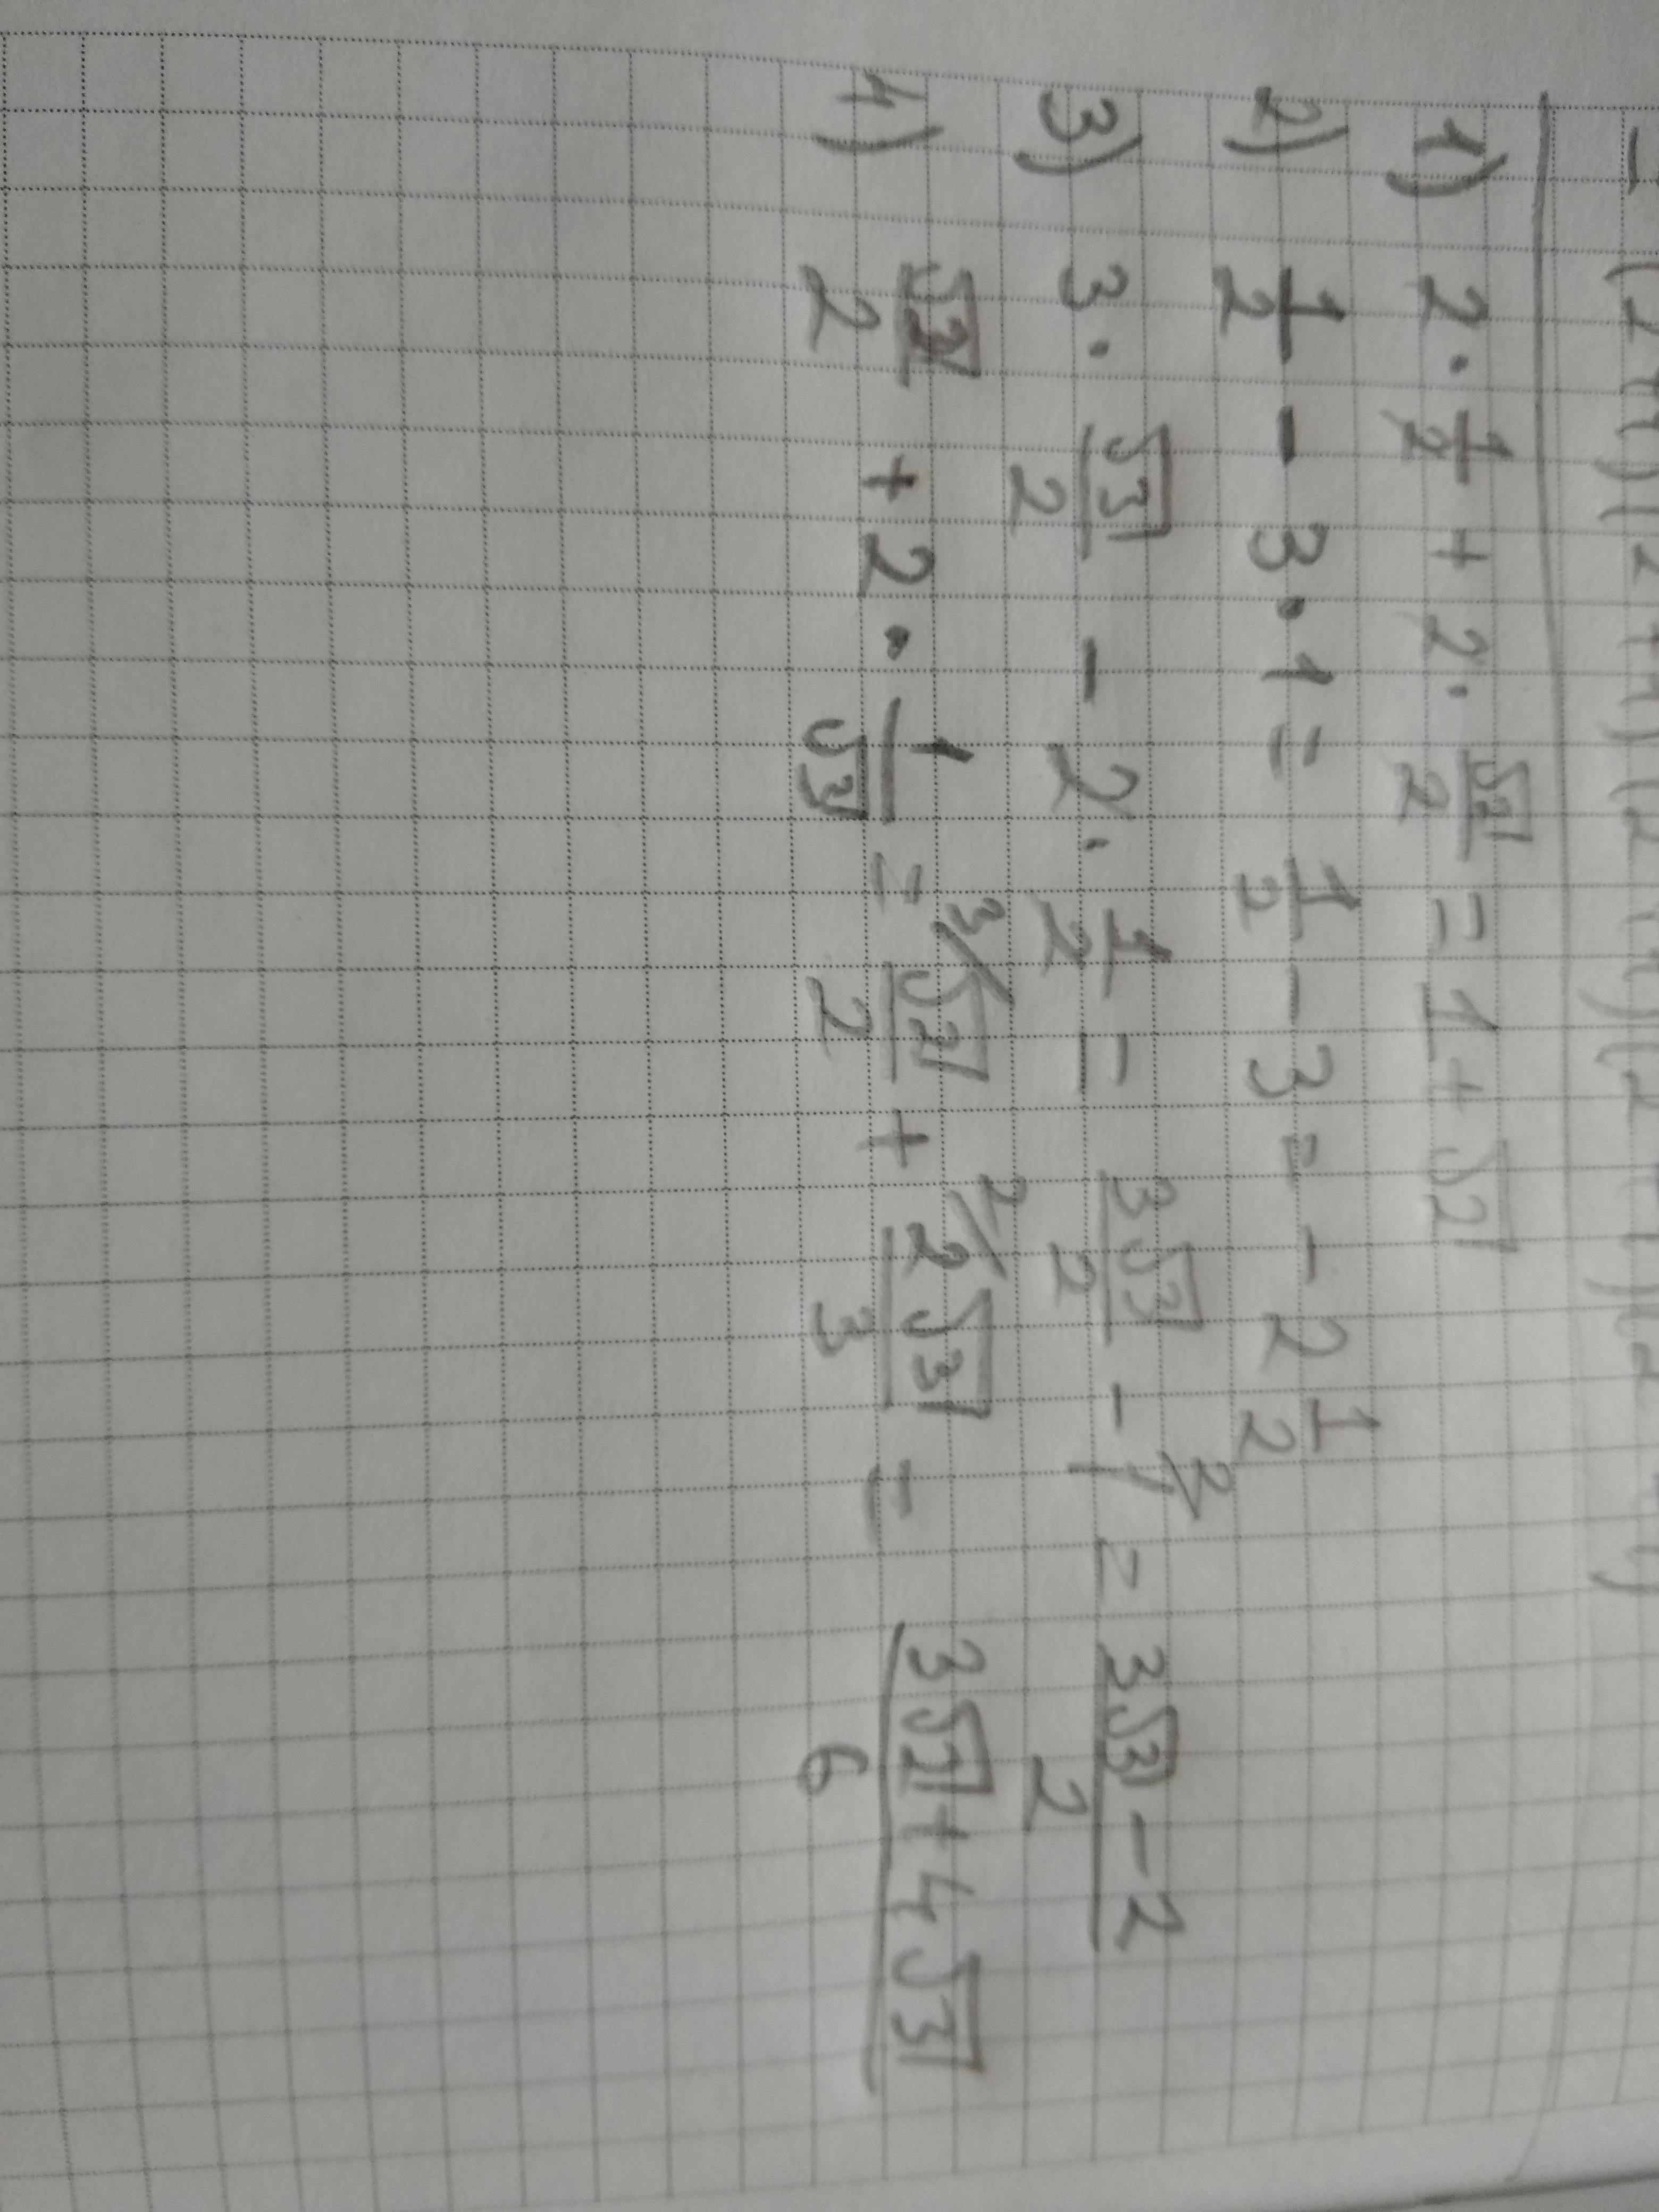 1) 2 · 1/2 + 2 · √2/2 = 1 + √2
2) 1/2 - 3 · 1 = 1/2 - 3 = - 2 1/2
3) 3 · √3/2 - 2 · 1/2 = 3√3/2 - 1 = (3√3 - 2)/2
4) √2/2 + 2 · 1/√3 = √2/2 + 2√3/3 = (3√2 + 4√3)/6